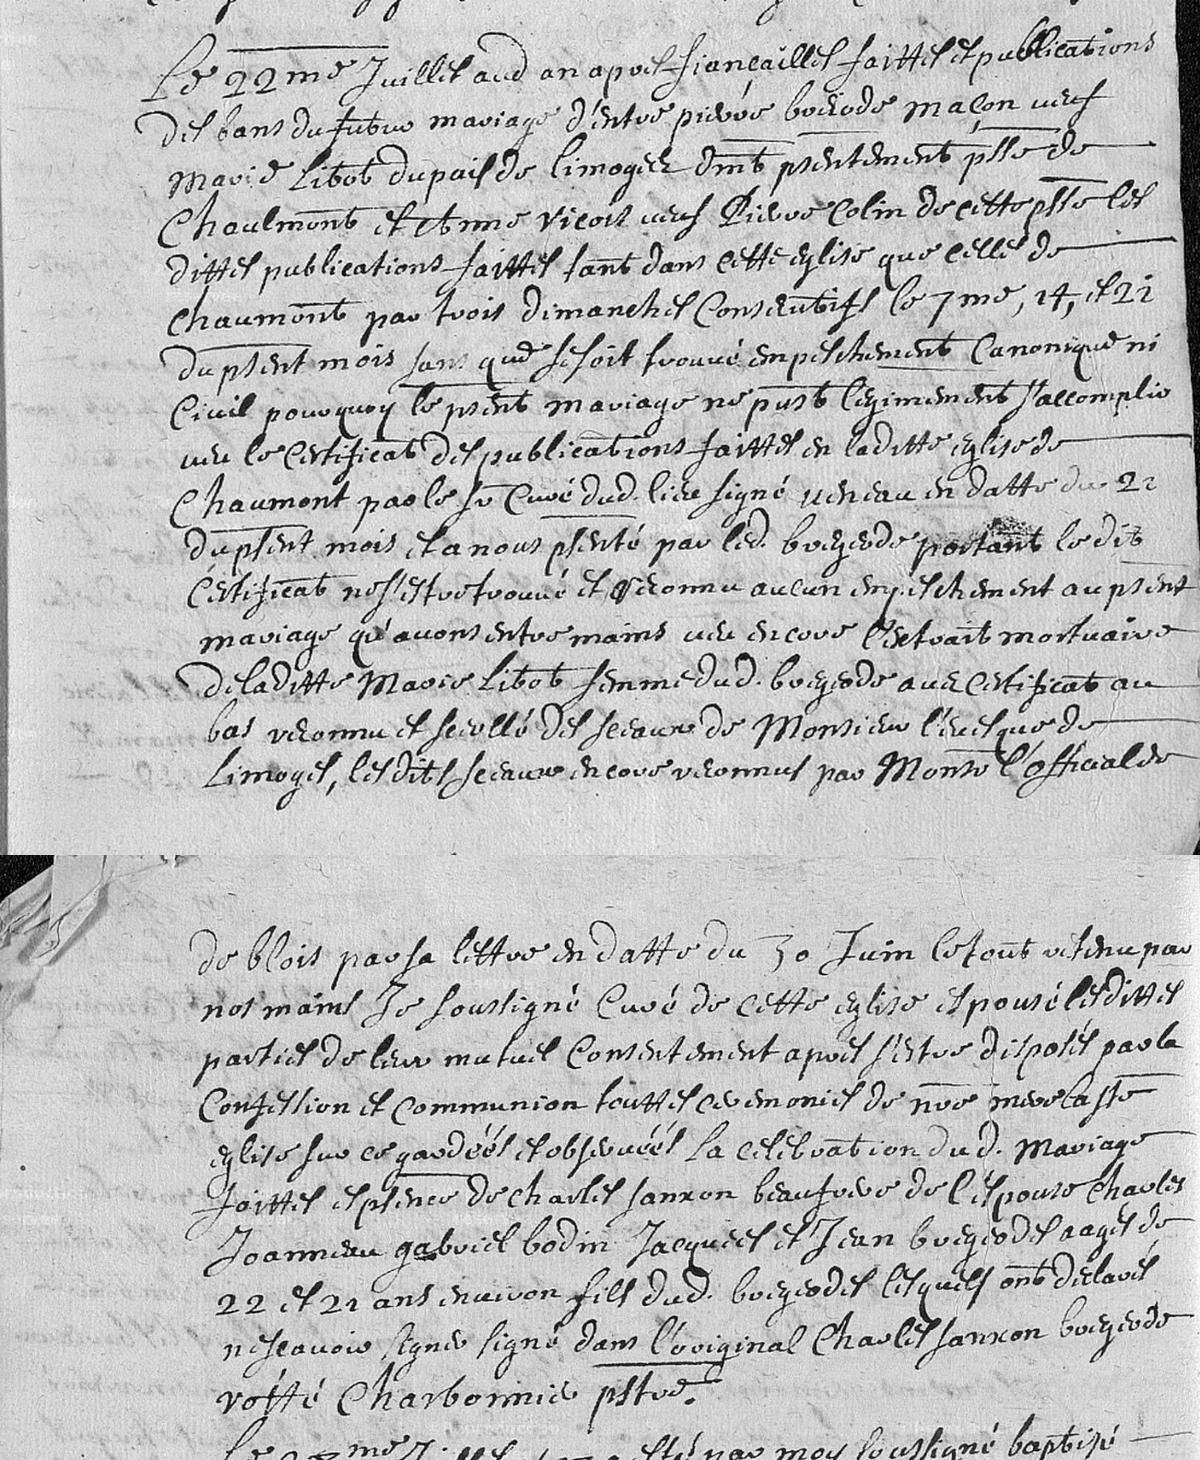 Le 22me Juillet aud an apres fiancailles faittes et publications
des bans du futur mariage d'entre pierre bregerde macon veuf
Marie Libot du païs de limoges dmt psentement psse de
Chaulmont et Anne vicois veufe Pierre Colin de cette psse les
dittes publications faittes tant dans cette eglise que celle de
Chaumont par trois dimanches Consecutifs le 7me, 14, et 21
du psent mois sans que se soit trouvé empeschement Canonique ni
Civil pourquoy le psent mariage ne pust legimement s'accomplir
veu le Certificat des publications faittes en laditte eglise de
Chaumont par le sr Curé dud. lieu signé veneau en datte du 21
du psent mois et a nous psenté par led. bregerde portant le dit
Certificat ne s'estre trouvé et reconnu aucun empeschement au psent
mariage qu'avons entre mains veu encore l'extrait mortuaire
de laditte Marie Libot femme dud. bregerde avec Certificat au
bas reconnu et scellé des sceaux de Monsieur l'evesque de
Limoges, lesdits sceaux encore reconnus par Monsr l'official de
de blois par sa lettre en datte du 30 Juin le tout retenu par
nos mains Je soussigné Curé de cette eglise espousé lesdittes
parties de leur mutuel Consentement apres s'estre disposés par la
Confession et communion touttes ceremonies de nre mere la ste
eglise sur ce gardéés et observéés la celebration dud. Mariage
faittes espsence de Charles sanxon beaufrere de l'espouse Charles
Joanneau gabriel bodin Jacques et Jean bregerdes aagés de
22 et 21 ans environ fils dud. bregerdes lesquels ont declarés
ne scavoir signer signé dans l'original Charles sanxon bregerde
rotté Charbonnier pstre.
Le me Juillet esté par moy soussigné baptisé